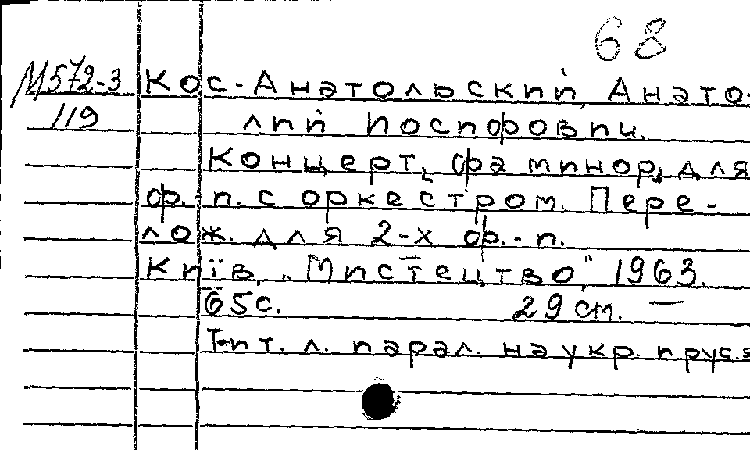 68
М572-3
119
Кос-Анатольский, Анато-
лий Иосифович.
Концерт, фа минор, для
ф.-п. с оркестром. Пере-
лож. для 2-х ф.-п.
Київ, „Мистецтво“, 1963.
65с. 29 см. —
Тит. л. парал. на укр. и рус. я